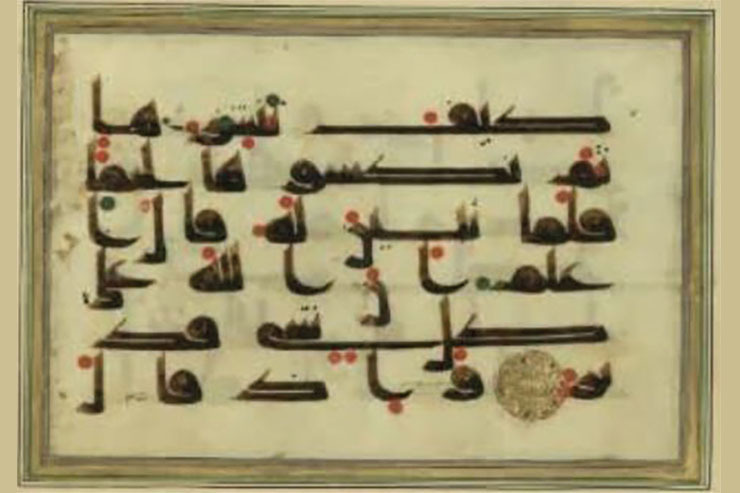 كيف ننشزها
ثم نكسوها لحما
فلما تبين له قال ا
علم ان الله على
كل شى قد
ير واذ قال ا